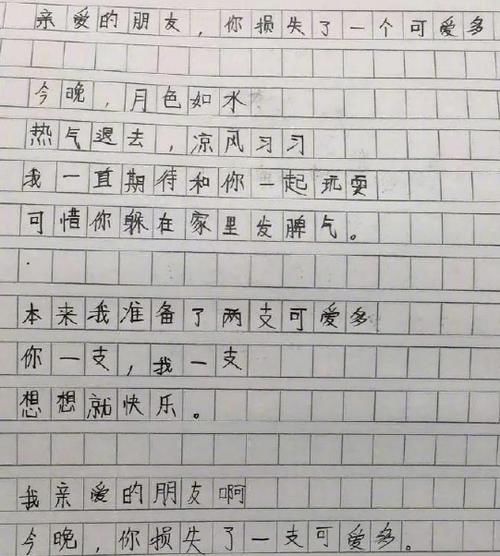 亲爱的朋友，你损失了一个可爱多
今晚，月色如水
热气退去，凉风习习
我一直期待和你一起玩耍
可惜你躲在家里发脾气。
本来我准备了两支可爱多
你一支，我一支
想想就快乐。
我亲爱的朋友啊
今晚，你损失了一支可爱多。